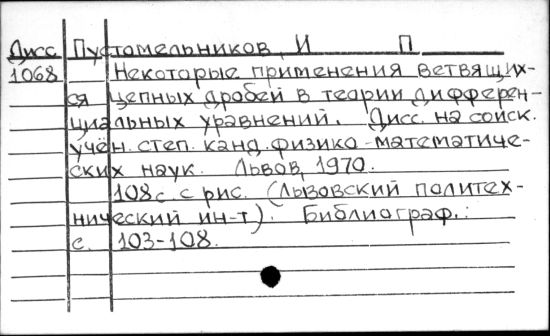 Дисс Пустомельников, И П
1068 Некоторые применения ветвящих-
ся цепных дробей в теории дифферен-
циальных уравнений. Дисс. на соиск.
учён. степ. канд. физико-математиче-
ских наук. Львов, 1970.
108 с. с рис. (Львовский политех-
нический ин-т). Библиограф.:
с. 103-108.